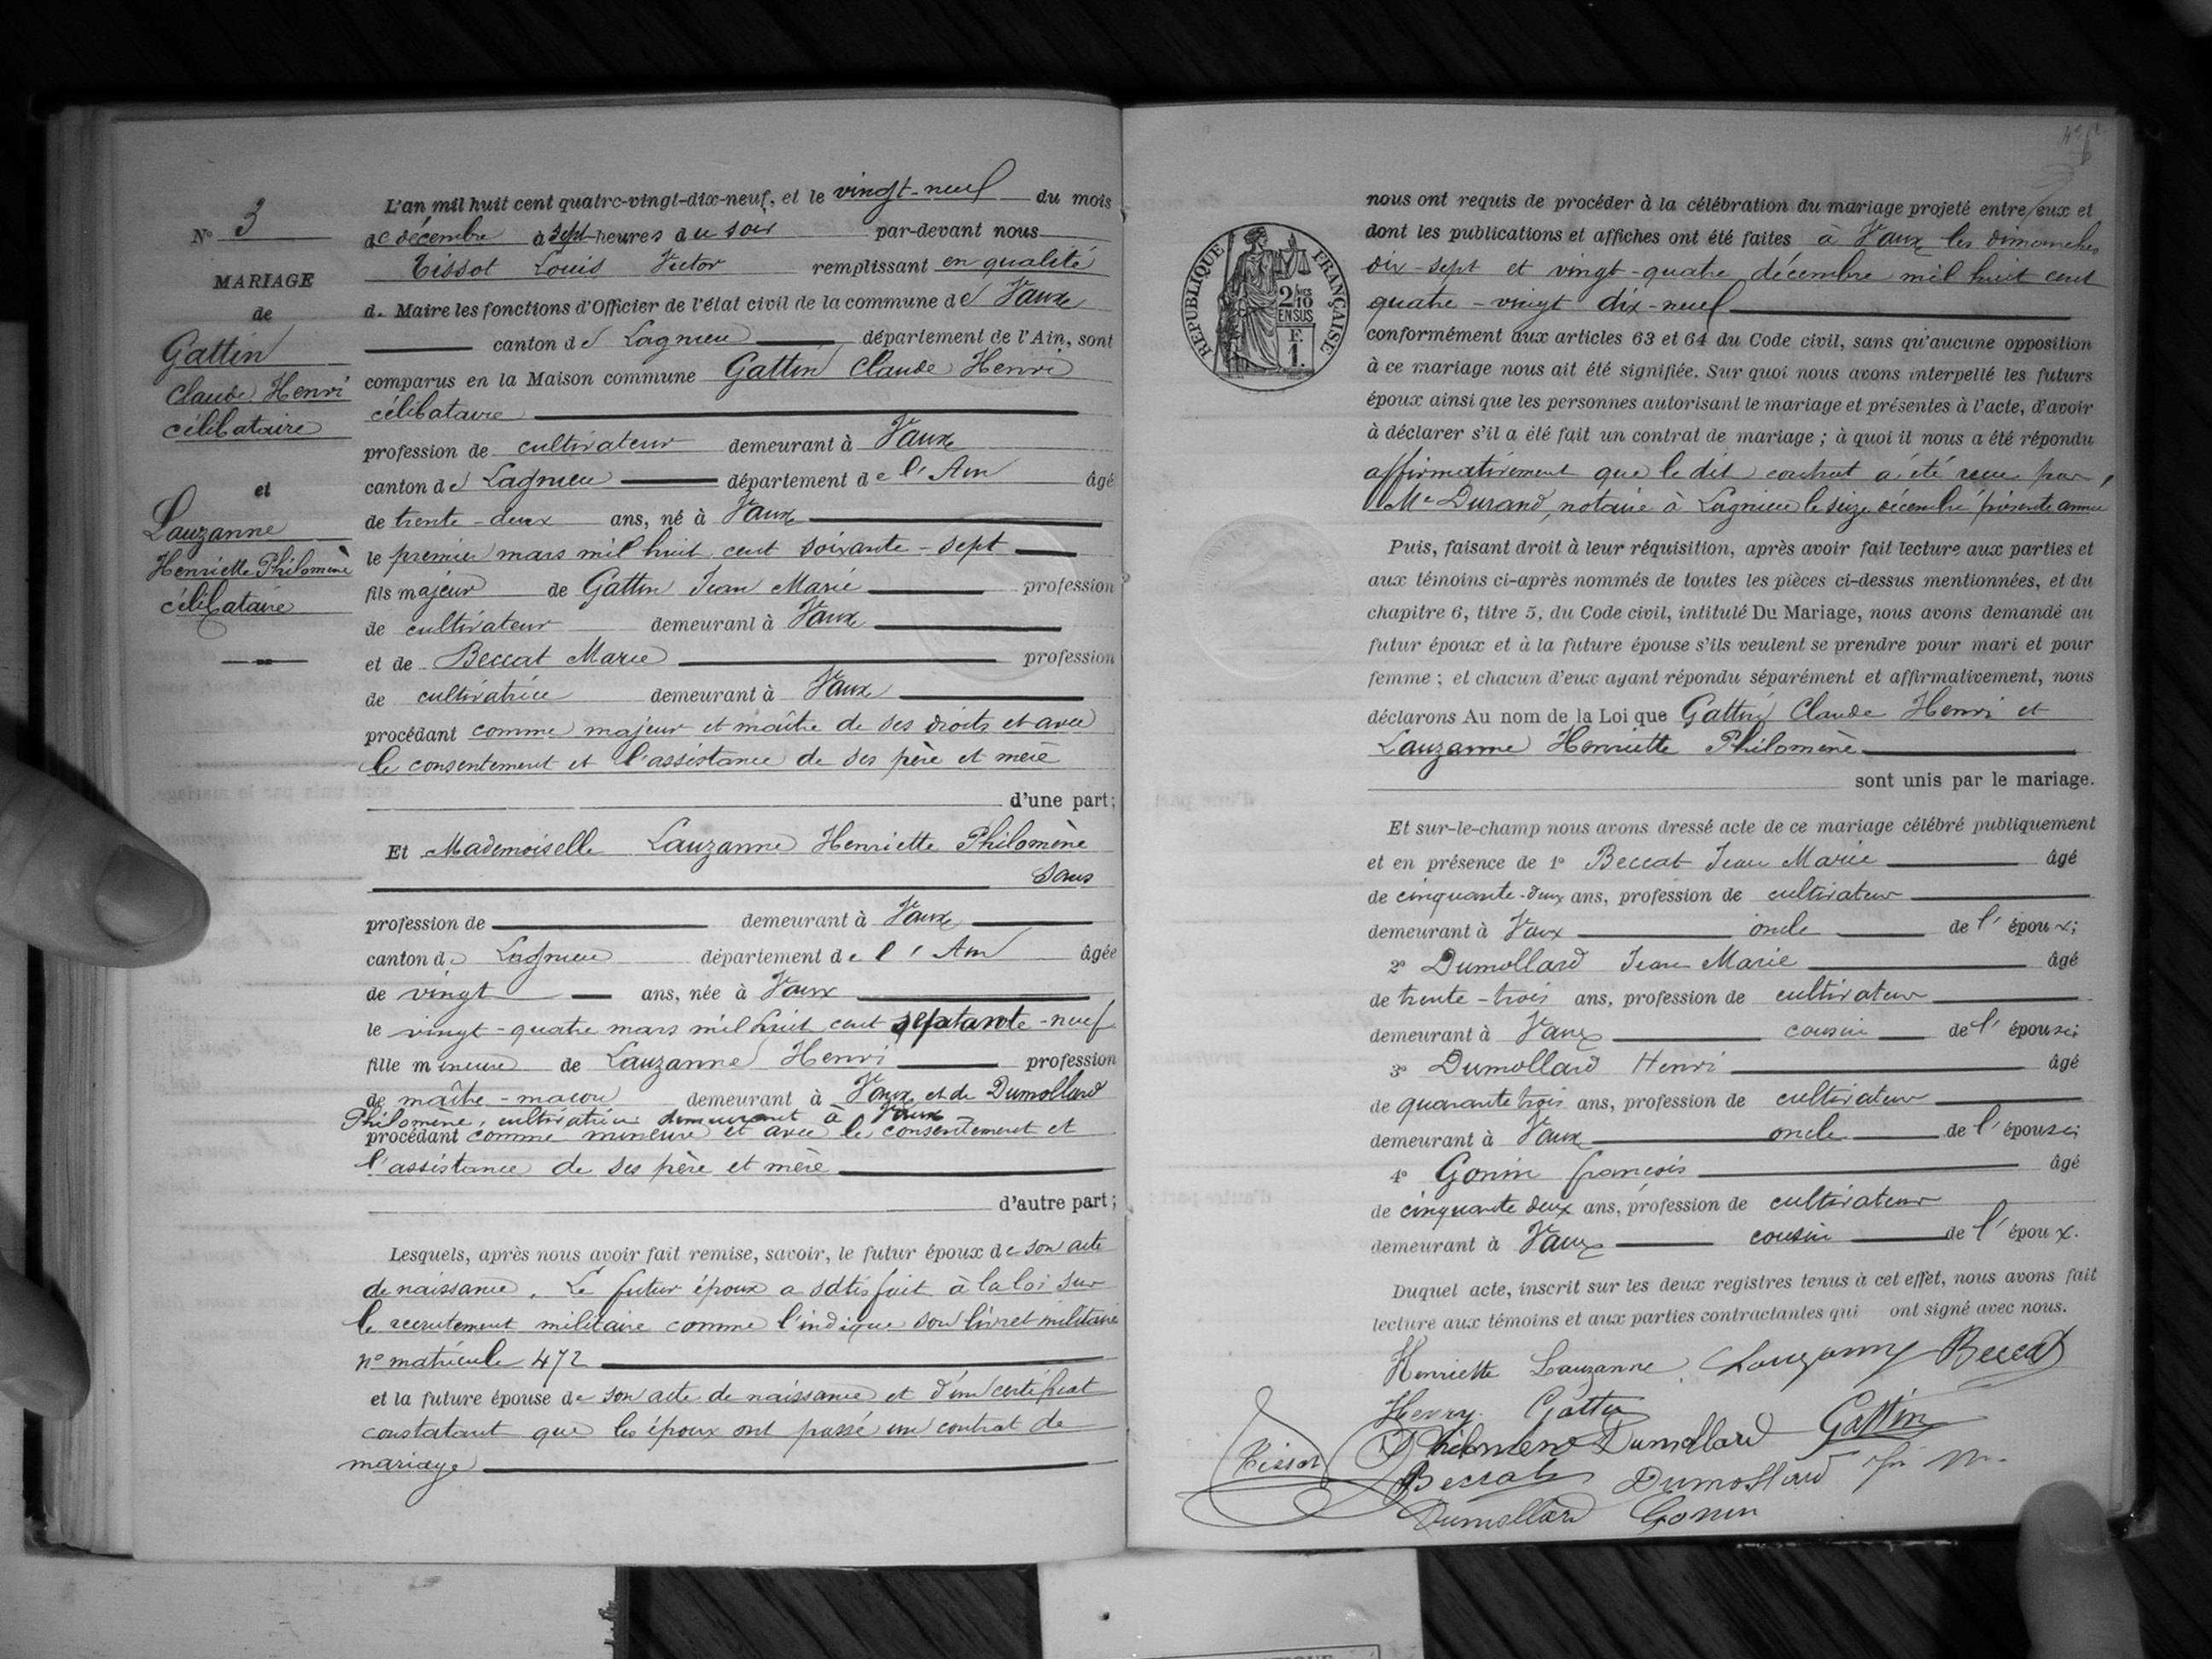 N° 3
MARIAGE
de
Gattin
Claude Henri
célibataire
et
Lauzanne
Henriette Philomène
célibataire
L'an mil huit cent quatre-vingt-dix-neuf, et le vingt-neuf du mois
de décembre à sept heures du soir par-devant nous
Tissot Louis Victor remplissant en qualité
d. Maire les fonctions d'Officier de l'état civil de la commune de Vaux
canton de Lagnieu département de l'Ain, sont
comparus en la Maison commune Gattin Claude Henri
célibataire
profession de cultivateur demeurant à Vaux
canton de Lagnieu département de l'Ain âgé
de trente-deux ans, né à Vaux
le premier mars mil huit cent soixante-sept
fils majeur de Gattin Jean Marie profession
de cultivateur demeurant à Vaux
et de Beccat Marie profession
de cultivatrice demeurant à Vaux
procédant comme majeur et maître de ses droits et avec
le consentement et l'assistance de ses père et mère
d'une part;
Et Mademoiselle Lauzanne Henriette Philomène
Sans
profession de demeurant à Vaux
canton de Lagnieu département de l'Ain âgée
de vingt ans, née à Vaux
le vingt-quatre mars mil huit cent septante-neuf
fille mineure de Lauzanne Henri profession
de maître-maçon demeurant à Vaux et de Dumollard
Philomène, cultivatrice demeurant à Vaux
procédant comme mineure et avec le consentement et
l'assistance de ses père et mère
d'autre part;
Lesquels, après nous avoir fait remise, savoir, le futur époux de son acte
de naissance. Le futur époux a satisfait à la loi sur
le recrutement militaire comme l'indique son livret militaire
n° matricule 472
et la future épouse de son acte de naissance et d'un certificat
constatant que les époux ont passé un contrat de
mariage
RÉPUBLIQUE FRANÇAISE
2 10 EN SUS
F. 1.
nous ont requis de procéder à la célébration du mariage projeté entre eux et
dont les publications et affiches ont été faites à Vaux les dimanches
dix-sept et vingt-quatre décembre mil huit cent
quatre-vingt dix-neuf
conformément aux articles 63 et 64 du Code civil, sans qu'aucune opposition
à ce mariage nous ait été signifiée. Sur quoi nous avons interpellé les futurs
époux ainsi que les personnes autorisant le mariage et présentes à l'acte, d'avoir
à déclarer s'il a été fait un contrat de mariage; à quoi il nous a été répondu
affirmativement que le dit contrat a été reçu par
Me Durand, notaire à Lagnieu le seize décembre présente année
Puis, faisant droit à leur réquisition, après avoir fait lecture aux parties et
aux témoins ci-après nommés de toutes les pièces ci-dessus mentionnées, et du
chapitre 6, titre 5, du Code civil, intitulé Du Mariage, nous avons demandé au
futur époux et à la future épouse s'ils veulent se prendre pour mari et pour
femme; et chacun d'eux ayant répondu séparément et affirmativement, nous
déclarons Au nom de la Loi que Gattin Claude Henri et
Lauzanne Henriette Philomène
sont unis par le mariage.
Et sur-le-champ nous avons dressé acte de ce mariage célébré publiquement
et en présence de 1° Beccat Jean Marie âgé
de cinquante-deux ans, profession de cultivateur
demeurant à Vaux oncle de l'époux;
2° Dumollard Jean Marie âgé
de trente-trois ans, profession de cultivateur
demeurant à Vaux cousin de l'épouse;
3° Dumollard Henri âgé
de quarante trois ans, profession de cultivateur
demeurant à Vaux oncle de l'épouse;
4° Gonin françois âgé
de cinquante deux ans, profession de cultivateur
demeurant à Vaux cousin de l'époux.
Duquel acte, inscrit sur les deux registres tenus à cet effet, nous avons fait
lecture aux témoins et aux parties contractantes qui ont signé avec nous.
Henriette Lauzanne. Lauzanne Beccat
Henry Gattin
Philomène Dumollard Gattin
Tissot Beccat Dumollard
Dumollard Gonin